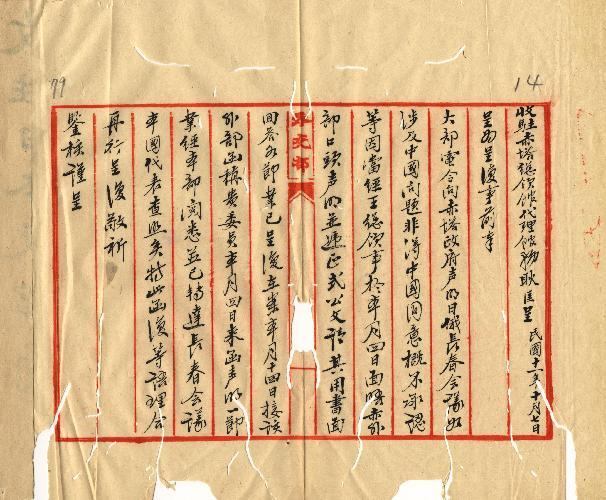 14
79
收駐赤塔總領館代理館務耿匡呈 民國十一年十月六日
呈為呈復事前奉
大部電令向赤塔政府声明日俄長春會議如
涉及中國問題非得中國同意概不承認
等因當經王總領事於本年月四日面晤赤外
部口頭声明並遞正式公文請其用書面
回答各節業已呈復在案本年月十四日接該
外部函稱貴委員本年月四日来函声明一節
業經本部閱悉並已轉達長春會議
本國代表查照矣特此函復等語理合
再行呈復敬祈
鑒核謹呈
外交部